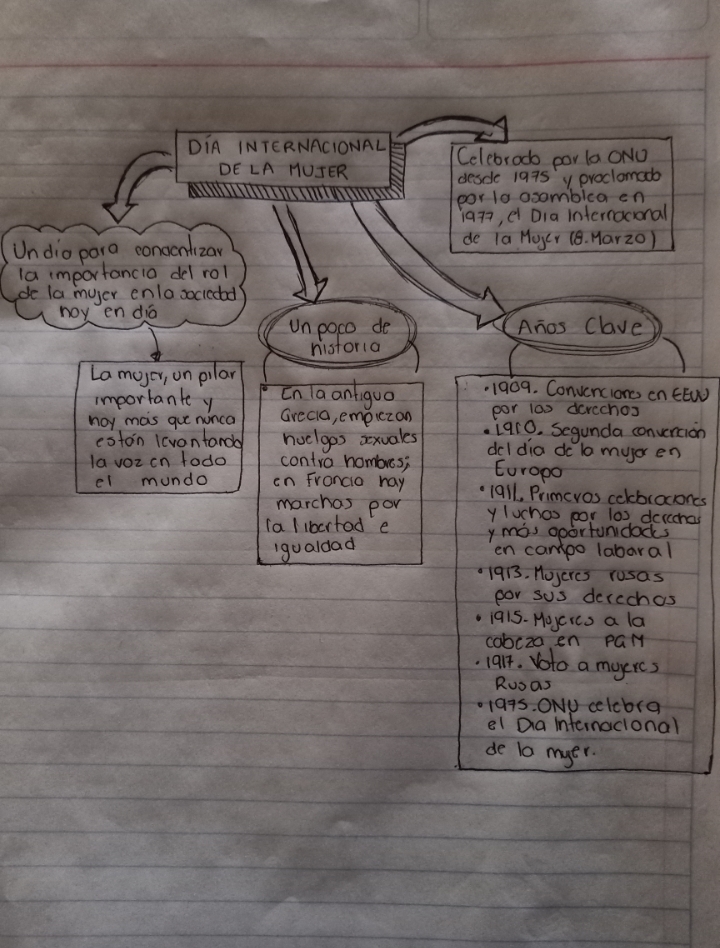 DÍA INTERNACIONAL
DE LA MUJER
Celebrado por la ONU
desde 1975 y proclamado
por la asamblea en
1977, el Dia Internacional
de la Mujer (8.Marzo)
Un día para concentizar
la importancia del rol
de la mujer en la sociedad
hoy en día
La mujer, un pilar
importante y
hoy más que nunca
están levantando
la voz en todo
el mundo
Un poco de
historia
• En la antigua
Grecia, empiezan
huelgas sexuales
contra hombres;
en Francia hay
marchas por
la libertad e
igualdad
Años Clave
• 1909. Convenciones en EEUU
por los derechos
• 1910. Segunda convención
del día de la mujer en
Europa
• 1911. Primeras celebraciones
y luchas por los derechos
y más oportunidades
en campo laboral
• 1913. Mujeres rusas
por sus derechos
• 1915. Mujeres a la
cabeza en PGM
• 1917. Voto a mujeres
Rusas
• 1975. ONU celebra
el Dia Internacional
de la mujer.